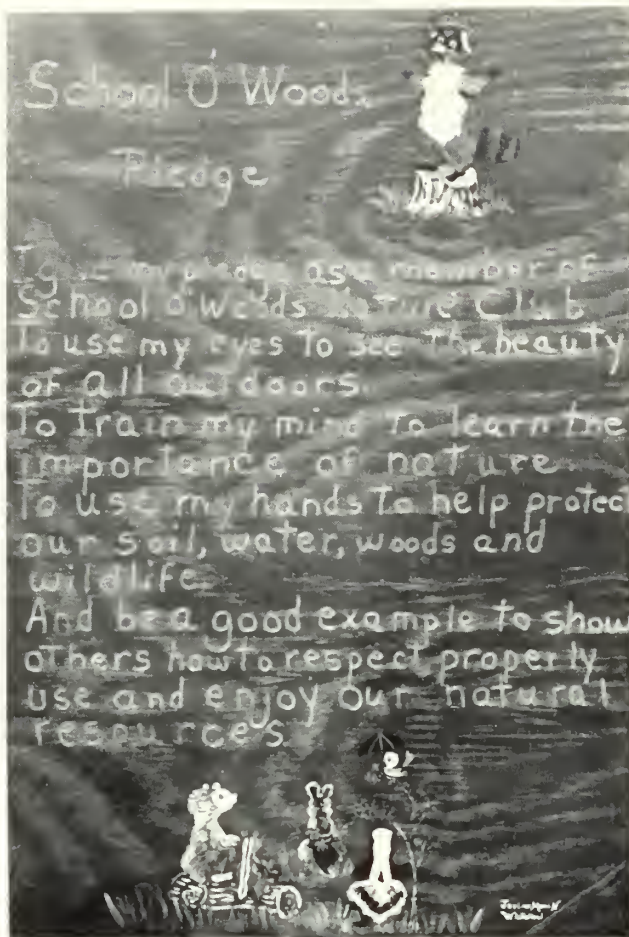 School O' Woods
Pledge
I give my pledge as a member of
School O' Woods Nature Club
To use my eyes to see the beauty
of all outdoors.
To train my mind to learn the
importance of nature
To use my hands to help protect
our soil, water, woods and
wildlife
And be a good example to show
others how to respect properly
use and enjoy our natural
resources.